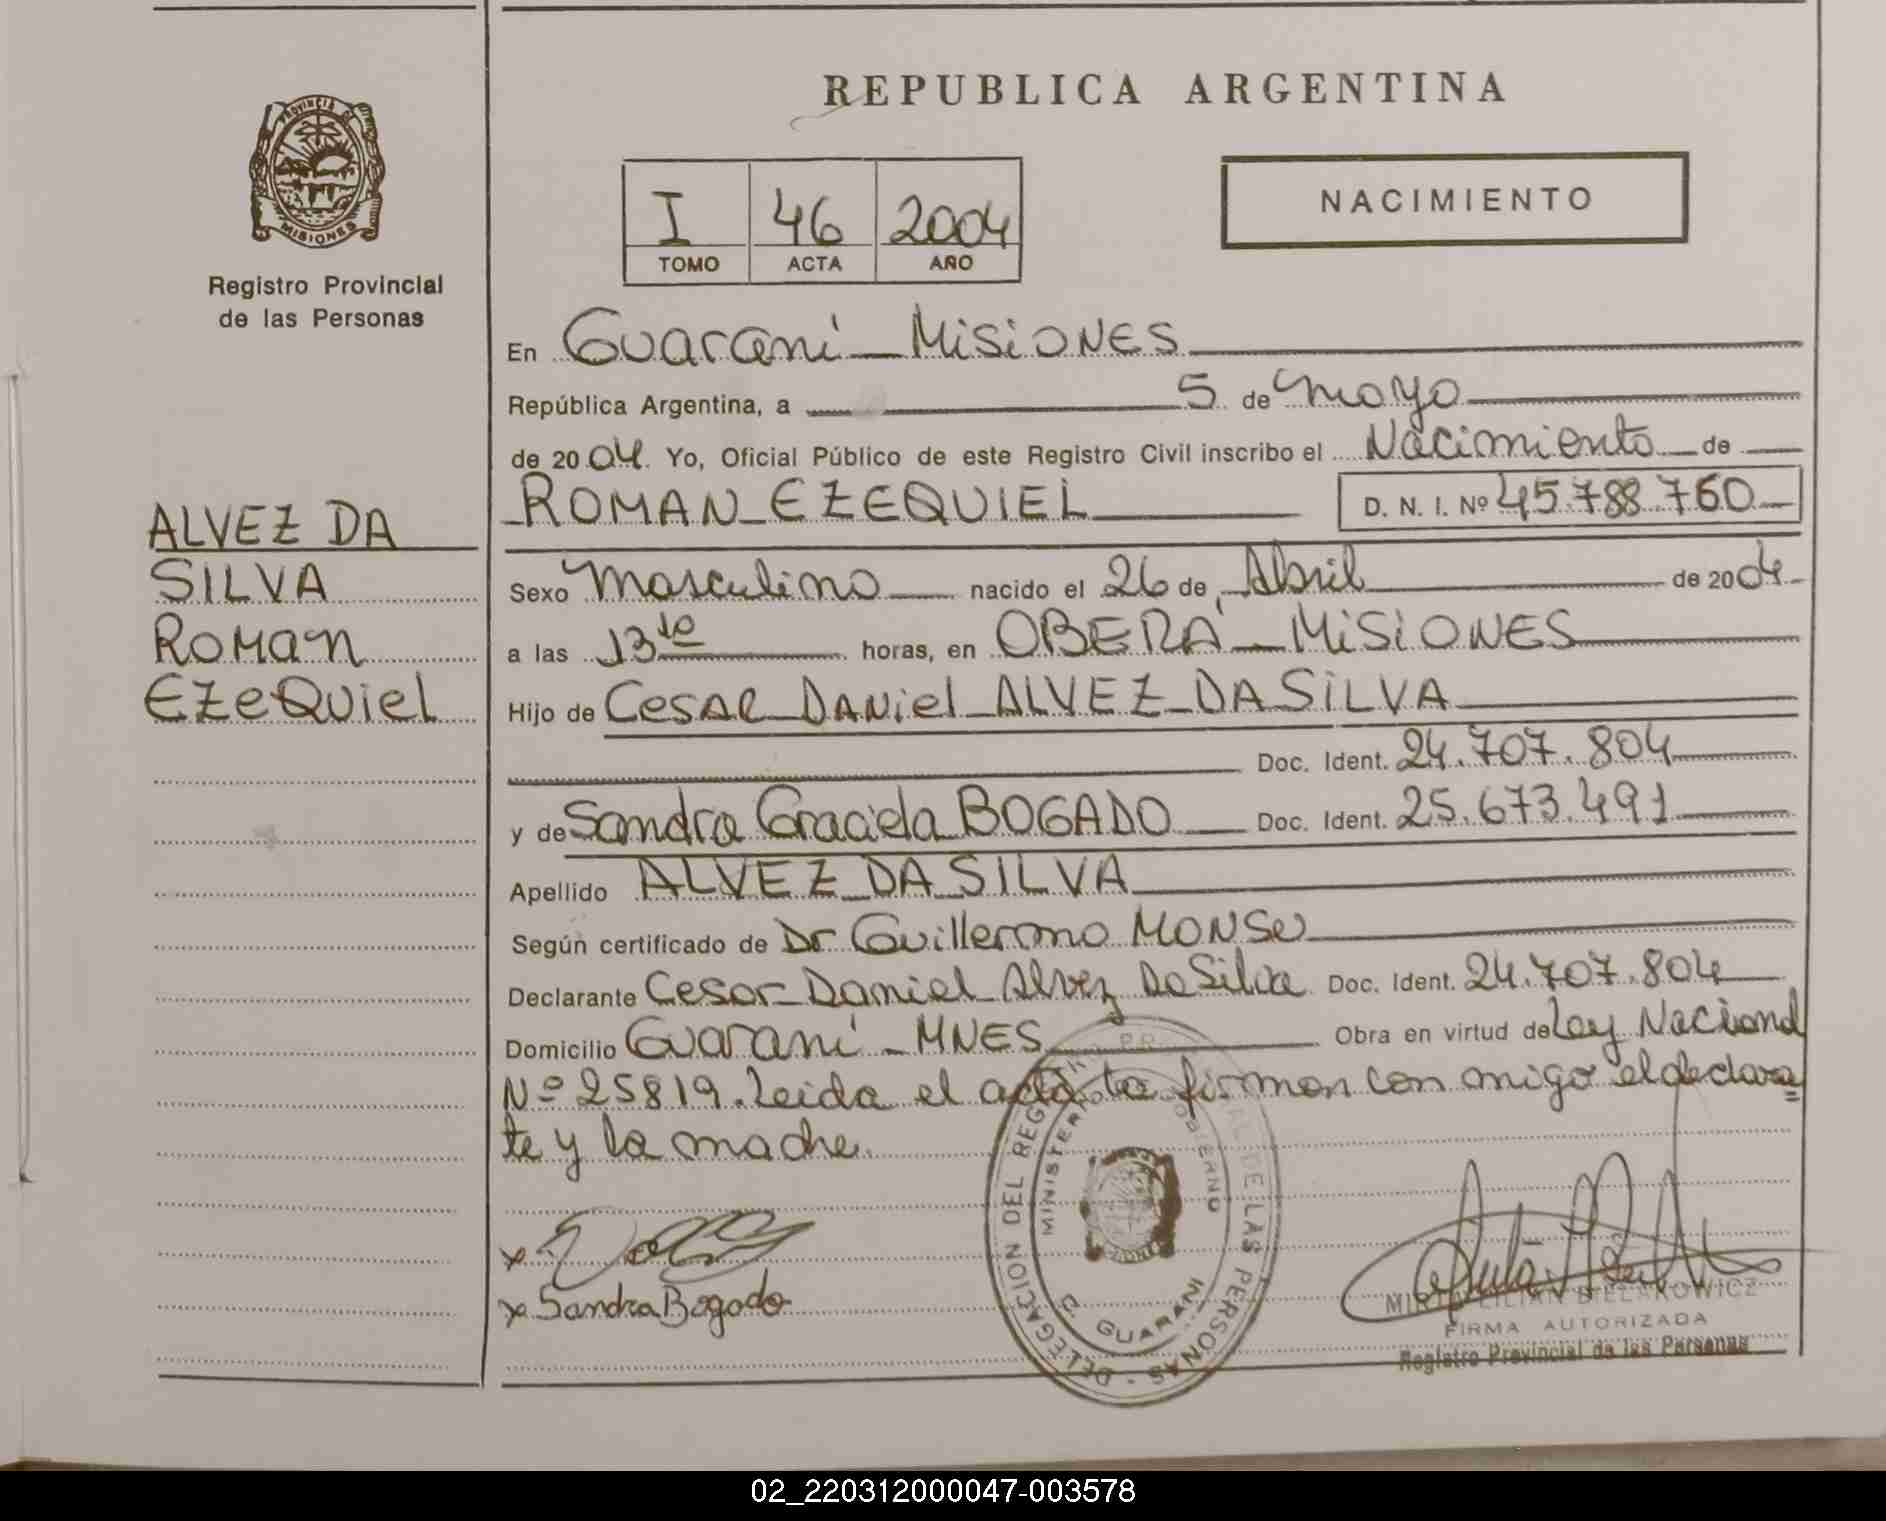 REPUBLICA ARGENTINA
PROVINCIA DE
MISIONES
Registro Provincial
de las Personas
I 46 2004
TOMO ACTA AÑO
NACIMIENTO
ALVEZ DA
SILVA
ROMAN
EZEQUIEL
En Guaraní - MISIONES
República Argentina, a 5 de mayo
de 2004. Yo, Oficial Público de este Registro Civil inscribo el Nacimiento de
ROMAN EZEQUIEL D. N. I. Nº 45.788.760
Sexo masculino nacido el 26 de Abril de 2004
a las 13 10 horas, en OBERÁ - MISIONES
Hijo de CESAR DANIEL ALVEZ DA SILVA
Doc. Ident. 24.707.804
y de Sandra Graciela BOGADO Doc. Ident. 25.673.491
Apellido ALVEZ DA SILVA
Según certificado de Dr Guillermo
Declarante Cesar Daniel Alvez Da Silva Doc. Ident. 24.707.804
Domicilio Guaraní - MNES Obra en virtud de Ley Nacional
Nº 25819. Leida el acta la firman con migo el declara=
te y la madre.
x
x Sandra Bogado
DELEGACION DEL REGISTRO PROVINCIAL DE LAS PERSONAS -
MINISTERIO DE GOBIERNO
C. GUARANI
LILIAN BIELAKOWICZ
FIRMA AUTORIZADA
Registro Provincial de las Personas
02_220312000047-003578